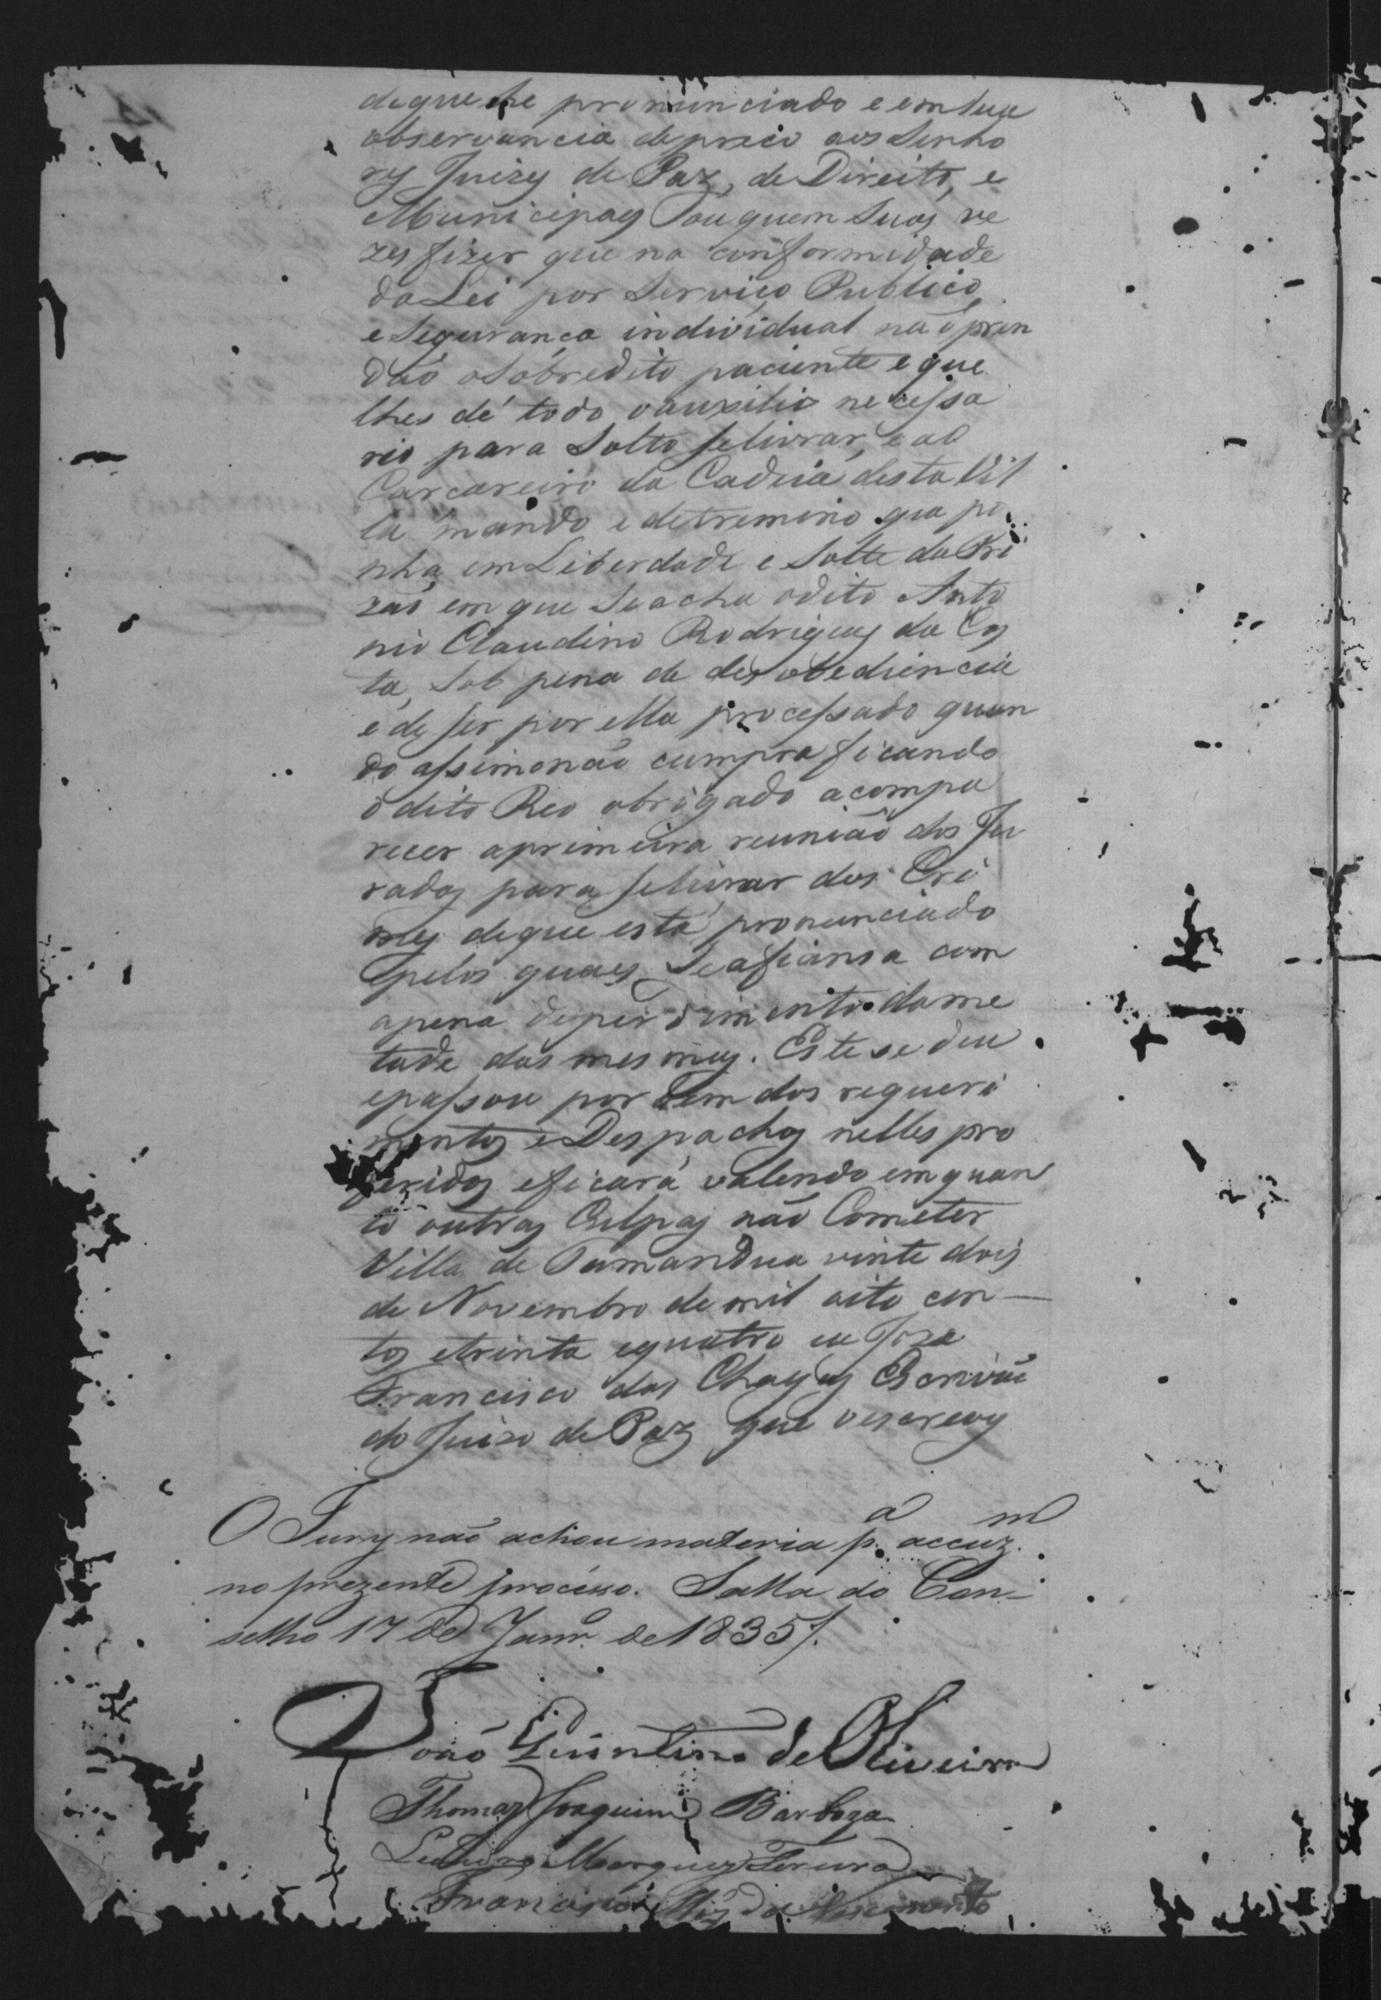 de que he pronunciado e em sua
observancia depreco aos Senho
res Juizes de Paz, de Direito, e
Municipaes ou quem suas ve
zes fizer que na conformidade
da Lei por Serviço Publico,
e Segurança individual não pren
dão o Sobredito paciente e que
lhes dê todo o auxilio necessa
rio para Solto se livrar, e ao
Carcareiro da Cadeia desta Vil
la mando e detremino que po
nha em Liberdade e Solte da Pri
zão em que Se acha o dito Anto
nio Claudino Rodrigues da Cos
ta, Sob pena de desobediencia
e de ser por ella processado quan
do assim o não cumpra ficando
o dito Reo obrigado a compa
recer a primeira reunião dos Ju
rados para se livrar dos Cri
mes de que está pronunciado
e pelos quaes Se afiansa com
a pena de perdimento da me
tade das mesmas. Este se deu
e passou por bem dos requeri
mentos e Despachos nelles pro
feridos e ficará valendo em quan
to outras Culpas não Cometer
Villa de Tamandua vinte dois
de Novembro de mil oito cen
tos e trinta e quatro eu Joze
Francisco das Chagas Escrivão
do Juizo de Paz que o escrevy
O Jury não achou materia p.ª accuz.m
no prezente processo. Salla do Con-
selho 17 de Janr.º de 1835/.
João Quintino de Oliveira
Thomaz Joaquim Barboza
Marques Ferura
Francisco Miz do Nascimento